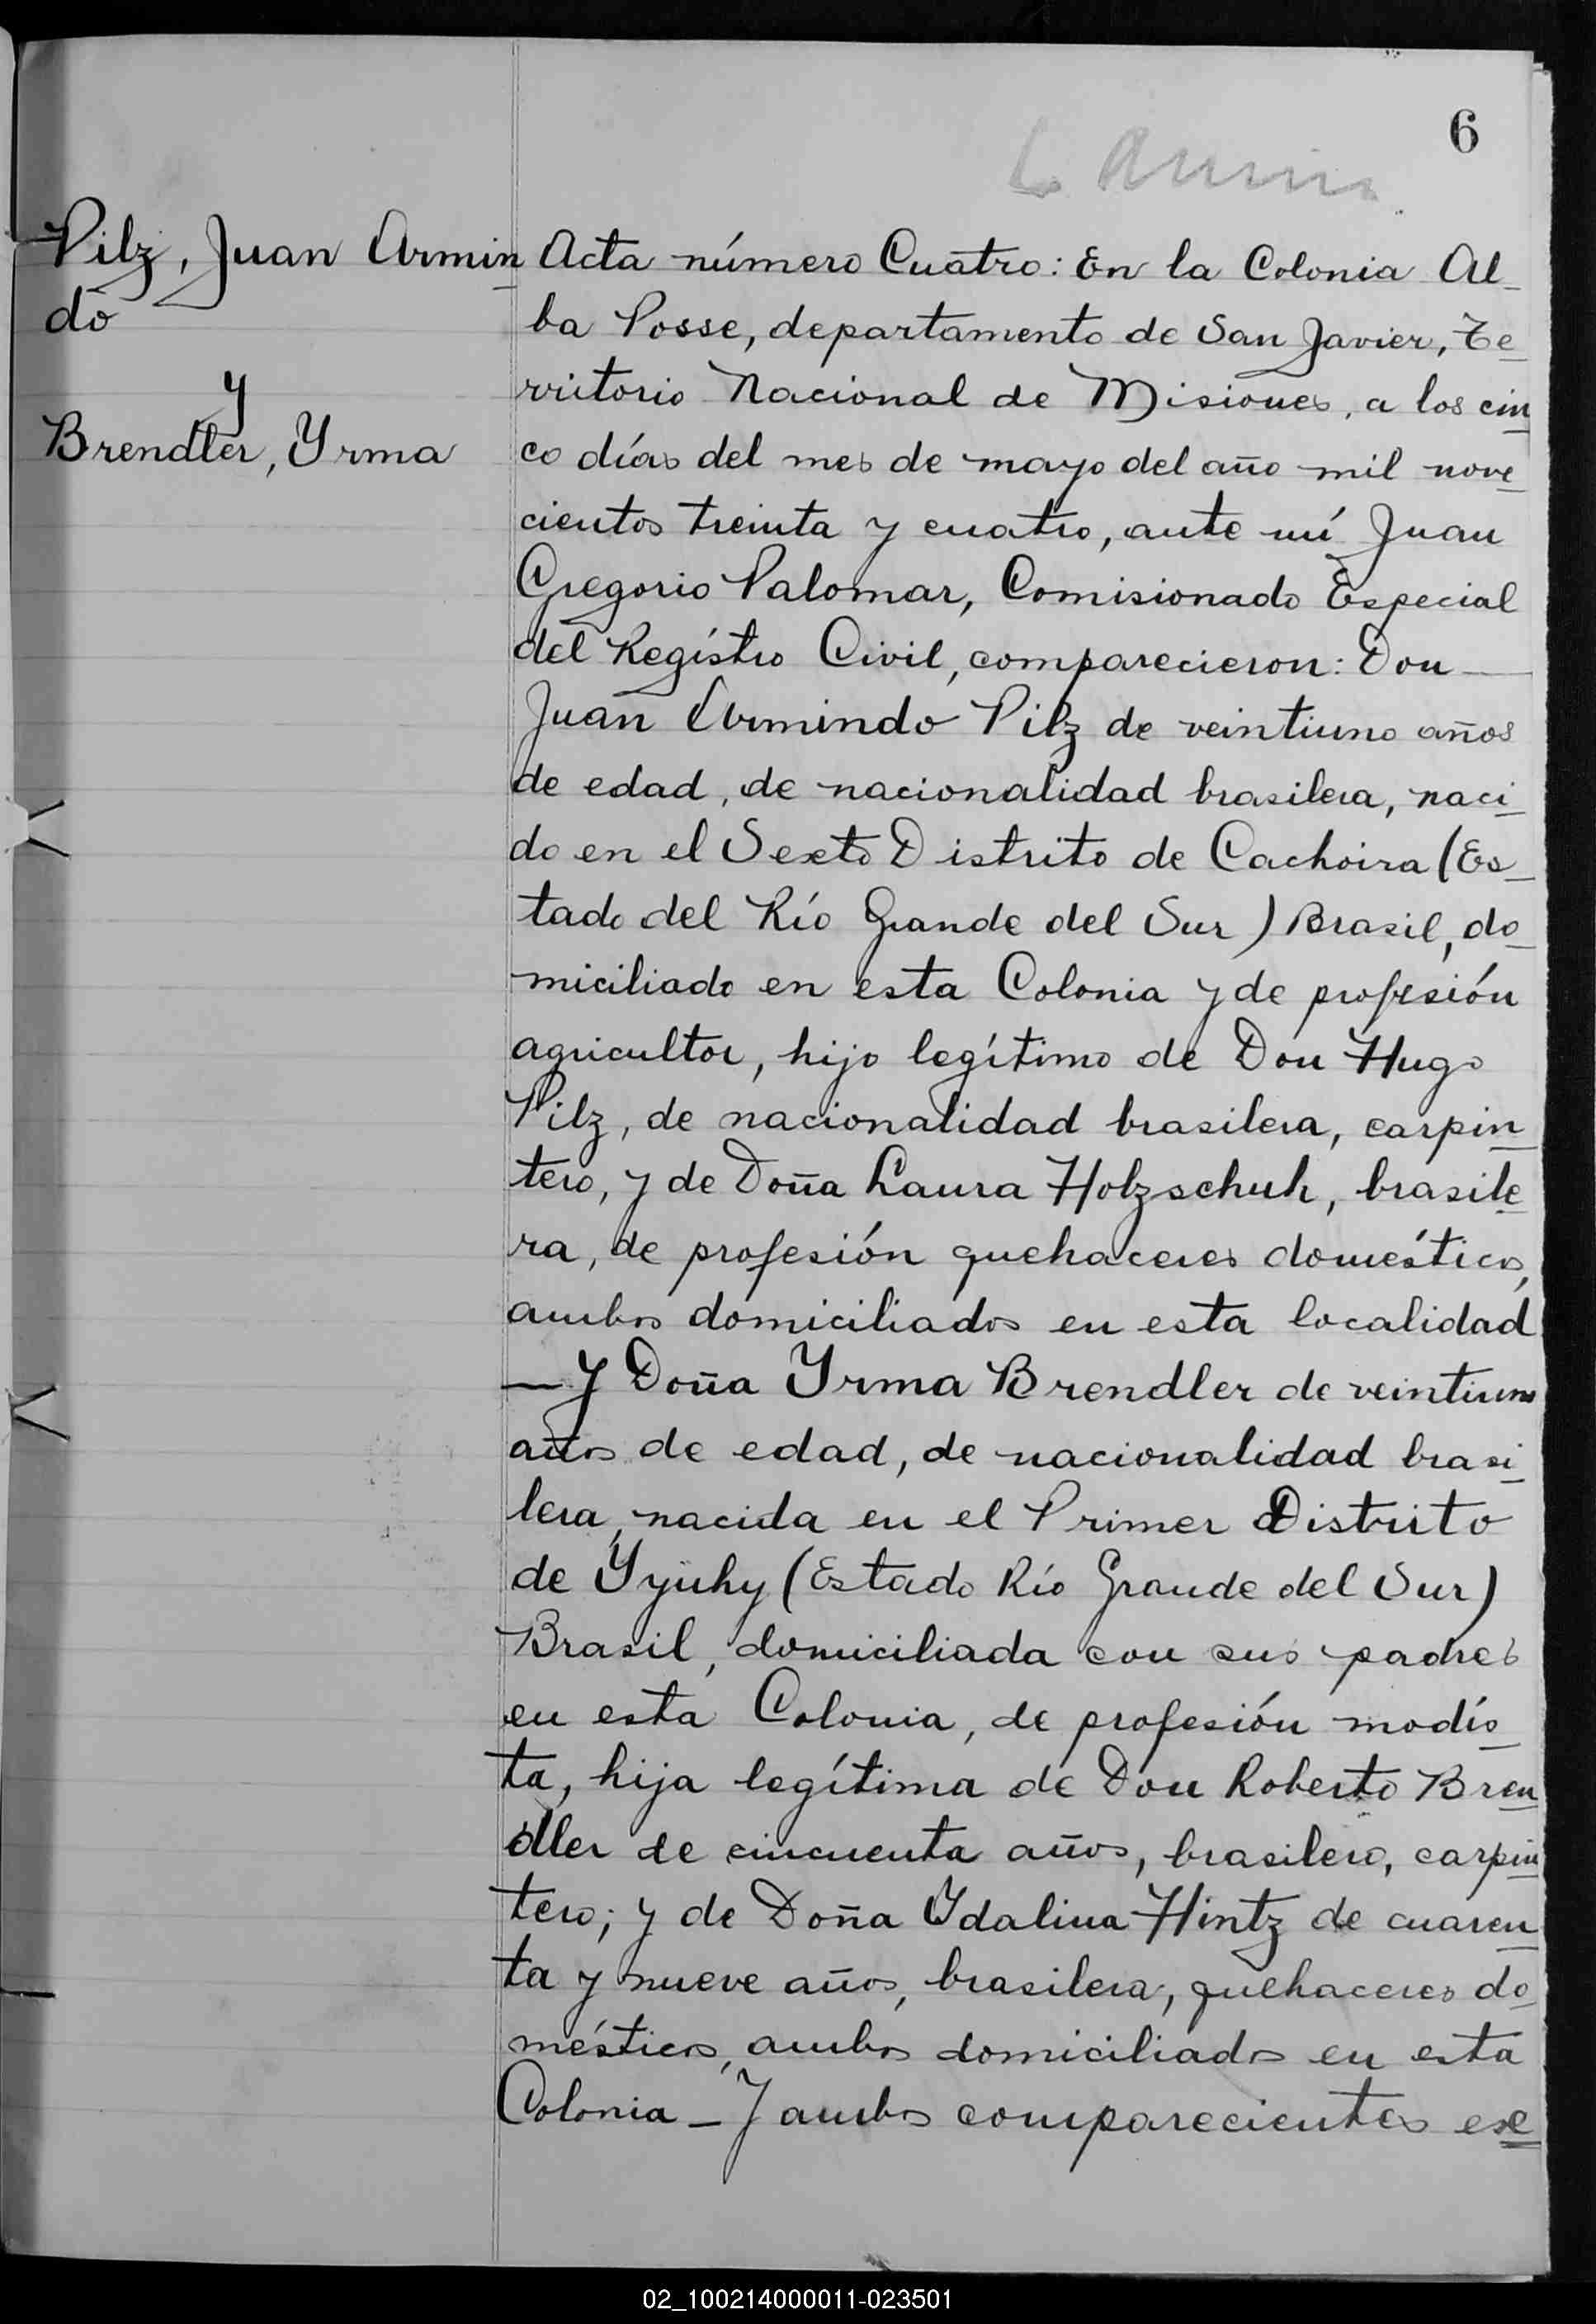 6
Pilz, Juan Armin
do
y
Brendler, Yrma
Acta número Cuatro: En la Colonia Al
ba Posse, departamento de San Javier, Te
rritorio Nacional de Misiones, a los cin
co días del mes de mayo del año mil nove
cientos treinta y cuatro, ante mí Juan
Gregorio Palomar, Comisionado Especial
del Regístro Civil, comparecieron: Don
Juan Armindo Pilz de veintiuno años
de edad, de nacionalidad brasilera, naci
do en el Sexto Distrito de Cachoira (Es
tado del Río Grande del Sur) Brasil, do
miciliado en esta Colonia y de profesión
agricultor, hijo legítimo de Don Hugo
Pilz, de nacionalidad brasilera, carpin
tero, y de Doña Laura Holzschuh, brasile
ra, de profesión quehaceres domésticos,
ambos domiciliados en esta localidad
— Y Doña Yrma Brendler de veintiuno
años de edad, de nacionalidad brasi
lera, nacida en el Primer Distrito
de Yyuhy (Estado Río Grande del Sur)
Brasil, domiciliada con sus padres
en esta Colonia, de profesión modís
ta, hija legítima de Don Roberto Bren
dler de cincuenta años, brasilero, carpin
tero; y de Doña Ydalina Hintz de cuaren
ta y nueve años, brasilera, quehaceres do
mésticos, ambos domiciliados en esta
Colonia — Y ambos comparecientes ex
02_100214000011-023501